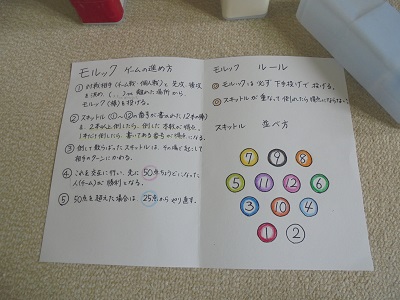 モルック ゲームの進め方
① 対戦相手(チーム戦・個人戦)と先攻・後攻
を決め、(...)m離れた場所から
モルック(棒)を投げる。
② スキットル(①〜⑫の番号が書かれた12本の棒)
を2本以上倒したら、倒した本数が得点。
1本だけ倒したら、書いてある番号が得点になる。
③ 倒して散らばったスキットルは、その場で起こして
相手のターンにかわる。
④ これを交互に行い、先に50点ちょうどになった
人(チーム)が勝利となる。
⑤ 50点を超えた場合は、25点からやり直す。
モルック ルール
◎ モルックは必ず下手投げで投げる。
◎ スキットルが重なって倒れたら得点にならない
スキットル 並べ方
7 9 8
5 11 12 6
3 10 4
1 2